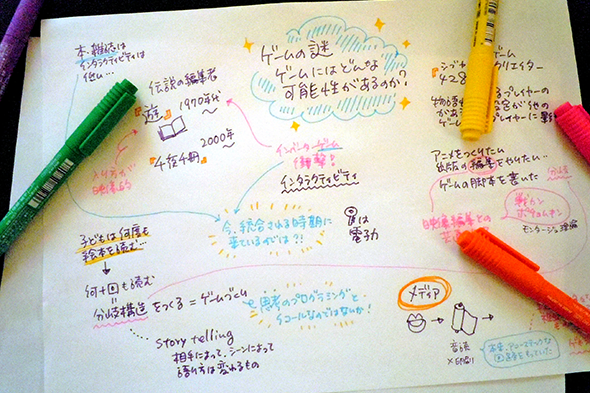 本、雑誌は
インタラクティビティは
低い…
伝説の編集者
『遊』1970年代
2000年
『千夜千冊』
ゲームの謎
ゲームにはどんな
可能性があるのか?
インベーダーゲーム
衝撃!
インタラクティビティ
ゲーム
クリエイター
428
プレイヤーの
が他の
プレイヤーに
アニメをつくりたい
出版の編集をやりたい…
ゲームの脚本を書いた
分岐
映像編集との
モンタージュ理論
今、統合される時期に
来ているのでは?!
昔は
電子力
子どもは何度も
絵本を読む…
何十回も読む
分岐構造をつくる=ゲームづくり
思考のプログラミングと
イコールなのではないか!
story telling
相手によって、シーンによって
語り方は変わるもの
メディア
音読